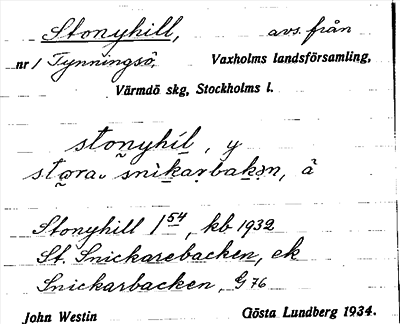 Stonyhill, avs. från
nr 1 Tynningsö. Vaxholms landsförsamling,
Värmdö skg, Stockholms l.
stonyhíl, y
stɷra. snìkaṛbakən, ả
Stonyhill 1 54, kb 1932
St. Snickarebacken, ek
Snickarbacken, G 76
John Westin Gösta Lundberg 1934.